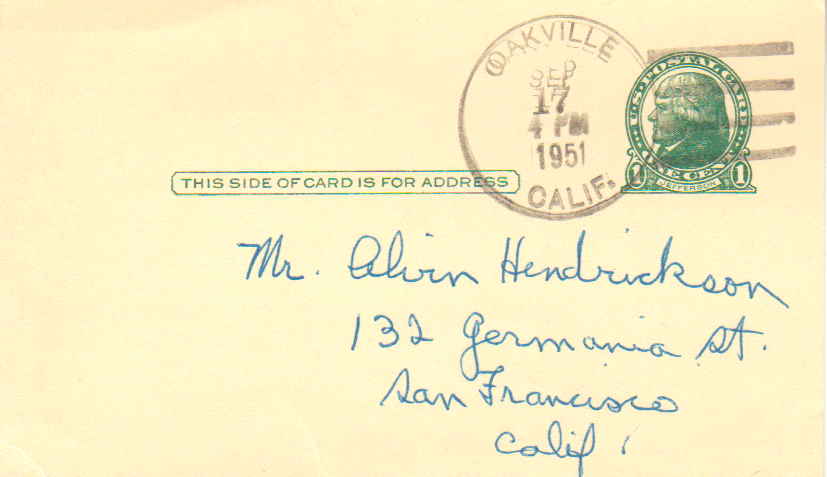 OAKVILLE
SEP
17
4 PM
1951
CALIF.
U.S. POSTAL CARD
ONE CENT
1 JEFFERSON 1
THIS SIDE OF CARD IS FOR ADDRESS
Mr. Alvin Hendrickson
132 Germania St.
San Francisco
Calif.